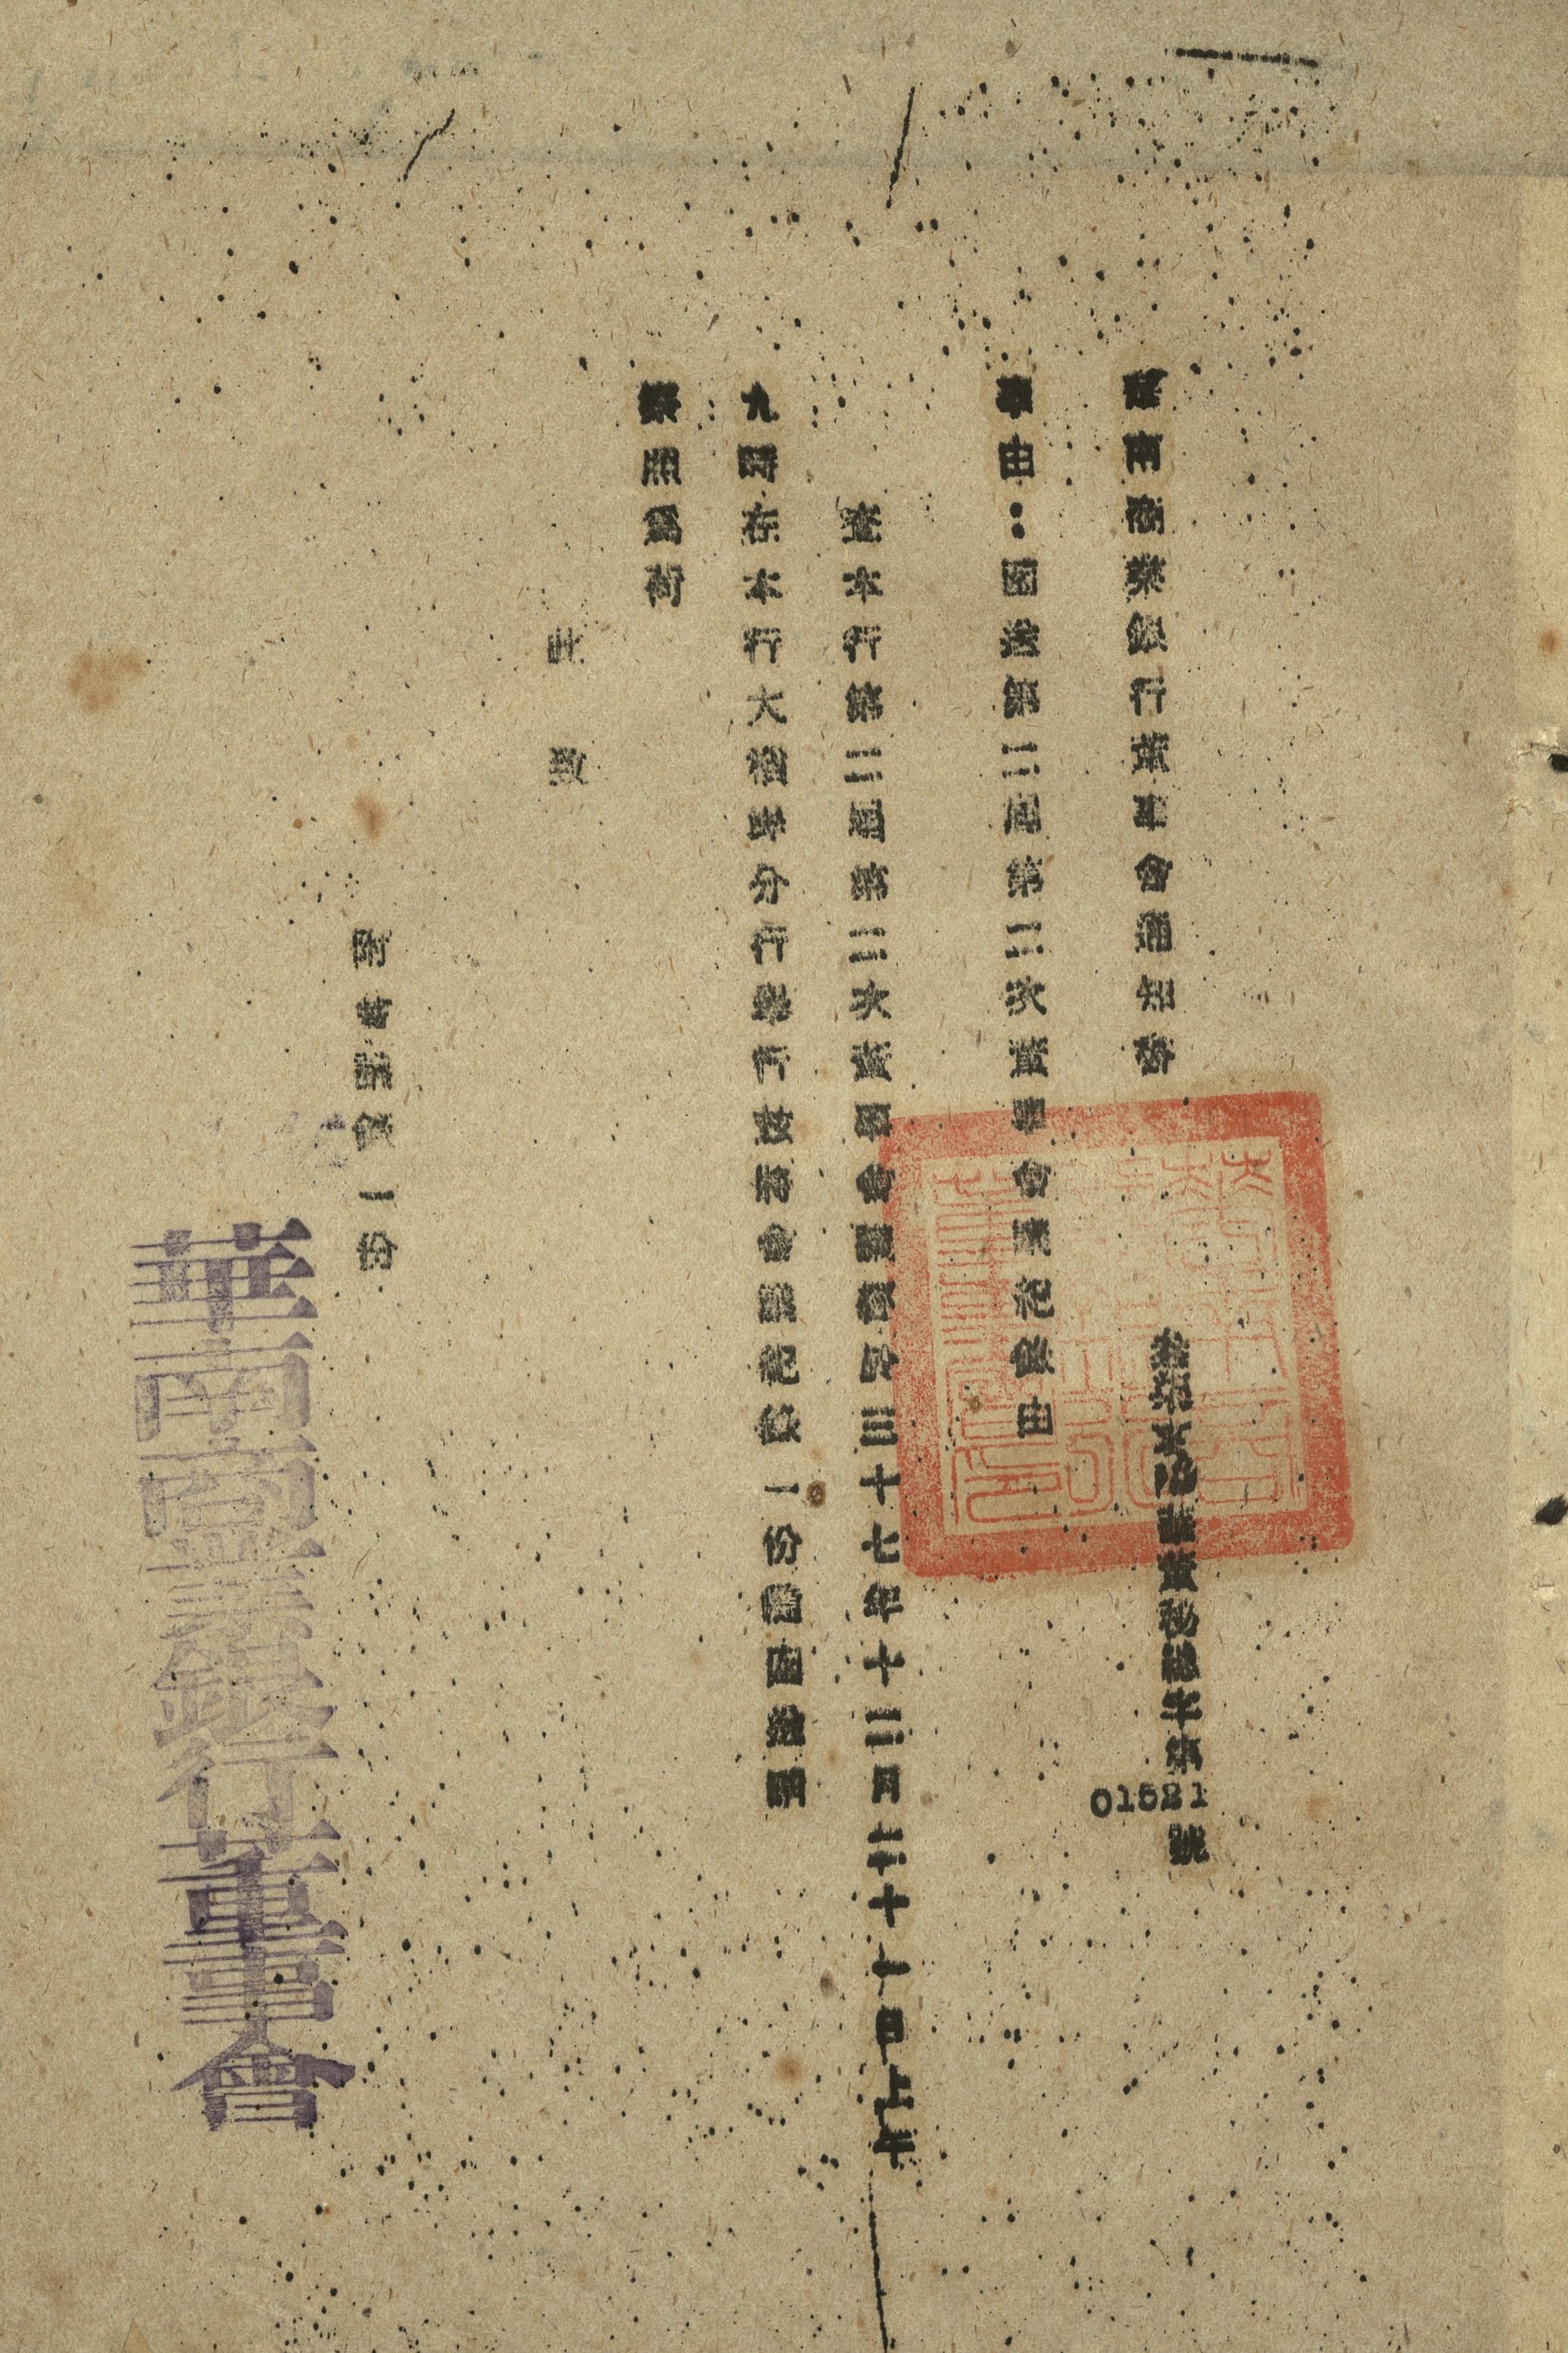 華南商業銀行董事會通知書
華董秘總字第01521號
事由：函送第二屆第三次董事會議紀錄由
查本行第二屆第三次董事會議經於三十七年十二月二十一日上午
九時在本行大稻埕分行舉行茲將會議紀錄一份隨函送請
察照為荷
此致
附會議錄一份
華南商業銀行董事會